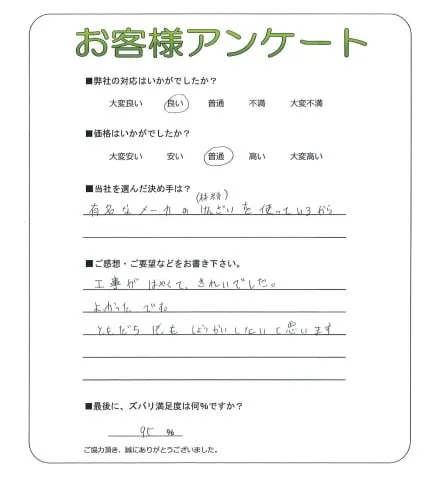 お客様アンケート
■弊社の対応はいかがでしたか？
大変良い 良い 普通 不満 大変不満
■価格はいかがでしたか？
大変安い 安い 普通 高い 大変高い
■当社を選んだ決め手は？
有名なメーカのけんざいを使っているから
■ご感想・ご要望などをお書き下さい。
工事がはやくて、きれいでした。
よかったです。
ともだちにもしょうかいしたいと思います
■最後に、ズバリ満足度は何%ですか？
95 %
ご協力頂き、誠にありがとうございました。